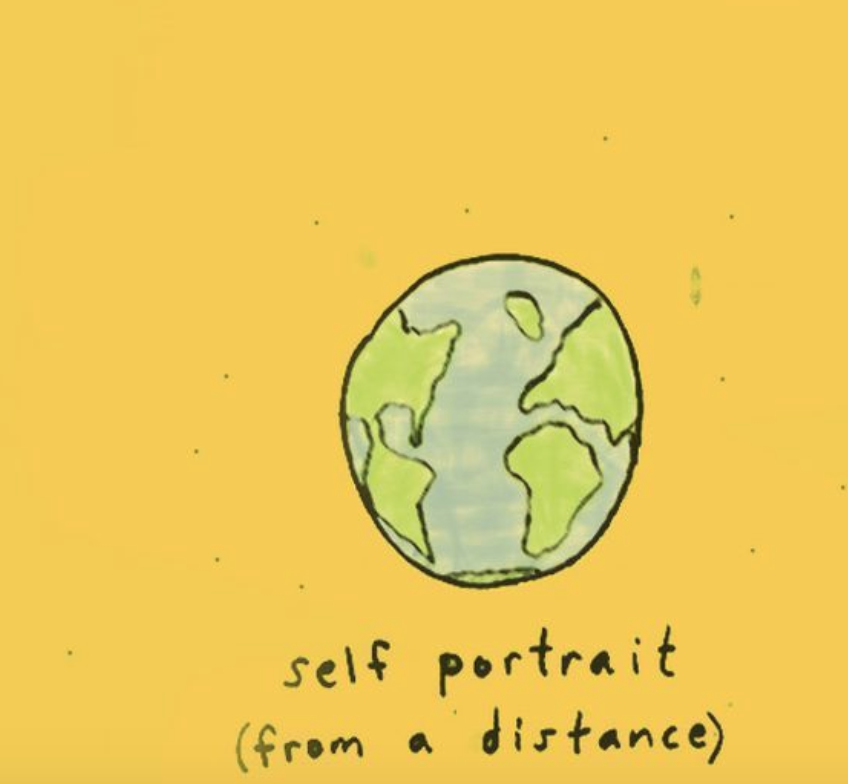 self portrait
(from a distance)